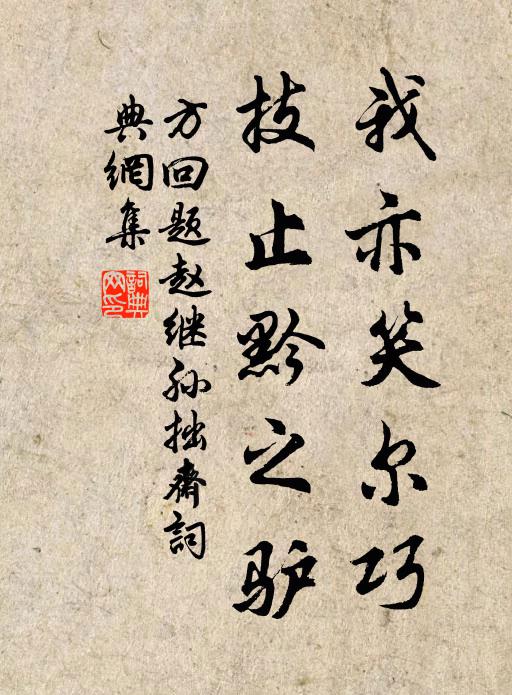 我亦笑尔巧
技止黔之驴
方回题赵继孙拙斋词
典網集
詞典
网印